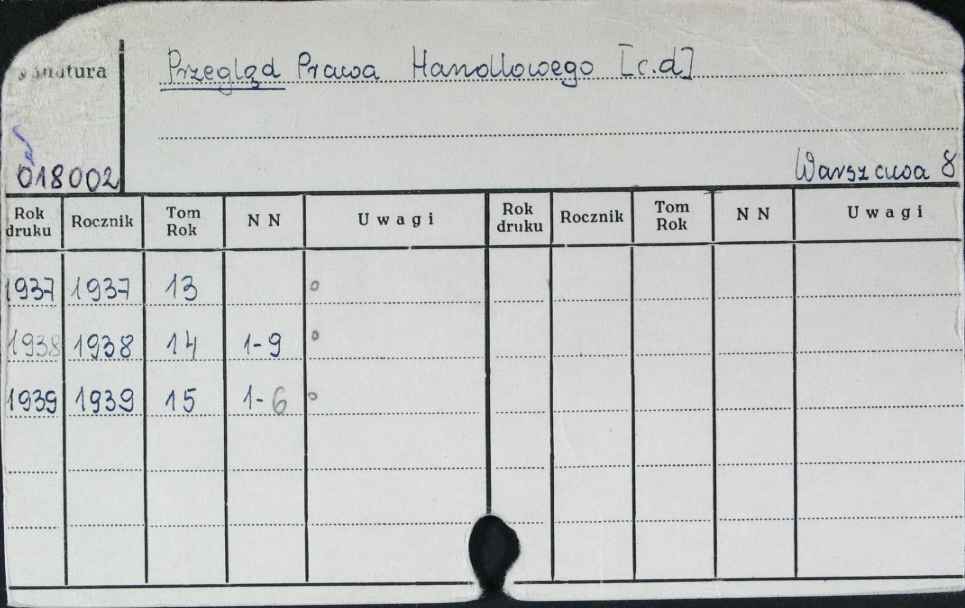 Sygnatura
Przegląd Prawa Handlowego [c.d]
018002
Warszawa 8
Rok druku Rocznik Tom Rok N N Uwagi Rok druku Rocznik Tom Rok N N Uwagi
1937 1937 13
1938 1938 14 1-9
1939 1939 15 1-6